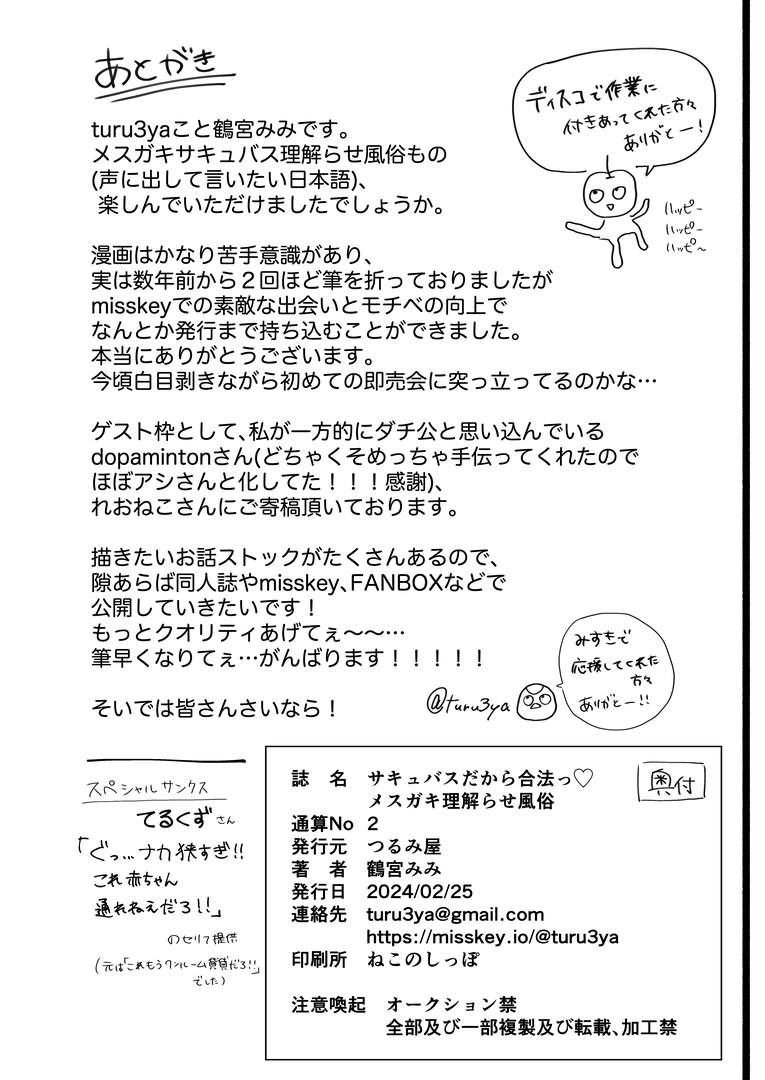 あとがき
turu3yaこと鶴宮みみです。
メスガキサキュバス理解らせ風俗もの
(声に出して言いたい日本語)、
楽しんでいただけましたでしょうか。
ディスコで作業に
付きあってくれた方々
ありがとー!
ハッピー
ハッピー
ハッピ～
漫画はかなり苦手意識があり、
実は数年前から２回ほど筆を折っておりましたが
misskeyでの素敵な出会いとモチベの向上で
なんとか発行まで持ち込むことができました。
本当にありがとうございます。
今頃白目剥きながら初めての即売会に突っ立ってるのかな…
ゲスト枠として、私が一方的にダチ公と思い込んでいる
dopamintonさん(どちゃくそめっちゃ手伝ってくれたので
ほぼアシさんと化してた！！！感謝)、
れおねこさんにご寄稿頂いております。
描きたいお話ストックがたくさんあるので、
隙あらば同人誌やmisskey、FANBOXなどで
公開していきたいです！
もっとクオリティあげてぇ〜〜…
筆早くなりてぇ…がんばります！！！！！
そいでは皆さんさいなら！
@turu3ya
みすきで
応援してくれた
方々
ありがとー!!
スペシャルサンクス
てるくずさん
「ぐっ...ナカ狭すぎ!!
これ赤ちゃん
通れねえだろ!!」
のセリフ提供
(元は「これもうワンルーム賃貸だろ!!」
でした)
奥付
誌　名　サキュバスだから合法っ♡
メスガキ理解らせ風俗
通算No　2
発行元　つるみ屋
著　者　鶴宮みみ
発行日　2024/02/25
連絡先　turu3ya@gmail.com
https://misskey.io/@turu3ya
印刷所　ねこのしっぽ
注意喚起　オークション禁
全部及び一部複製及び転載、加工禁